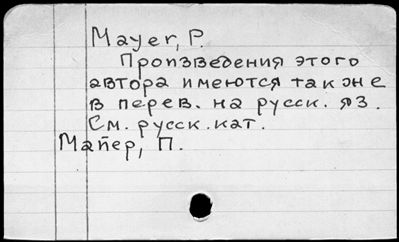 Mayer, P.
Произведения этого
автора имеются также
в перев. на русск. яз.
См. русск. кат.
Майер, П.